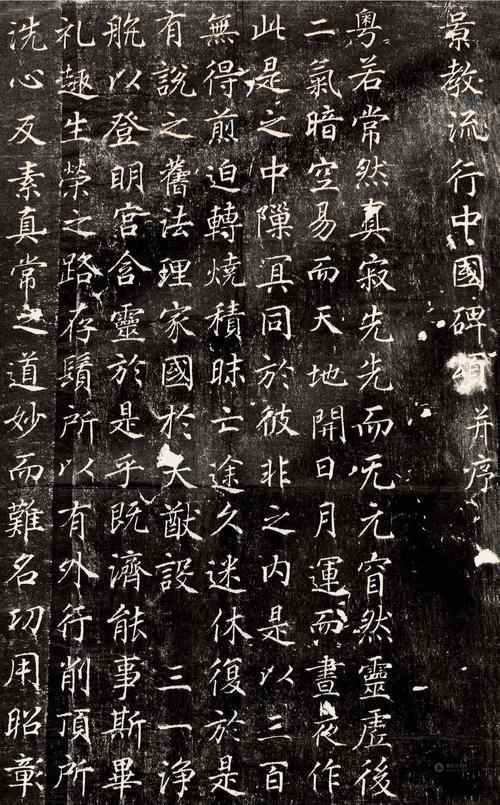 景教流行中國碑頌并序
粵若常然真寂先先而无元窅然靈虛後
二氣暗空易而天地開日月運而晝夜作
此是之中隟冥同於彼非之內是以三百
無得煎迫轉燒積昧亡途久迷休復於是
有說之舊法理家國於大猷設 三一淨
航以登明宮含靈於是乎既濟能事斯畢
礼趣生榮之路存鬚所以有外行削頂所
洗心反素真常之道妙而難名功用昭彰